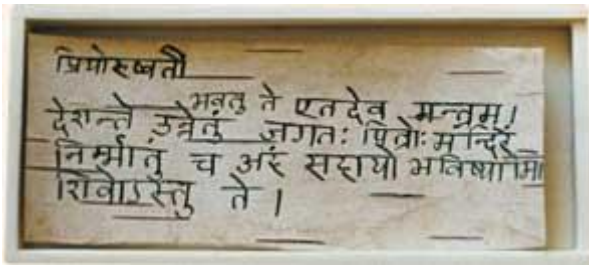 प्रियोरुष्वतौ
भवतु ते एतदेव मन्त्रम्।
देशान्ते उन्नेतुं जगतः पित्रोः मन्दिरं
निर्म्मातुं च अहं सहायो भविष्यामि
शिवोऽस्तु ते ।